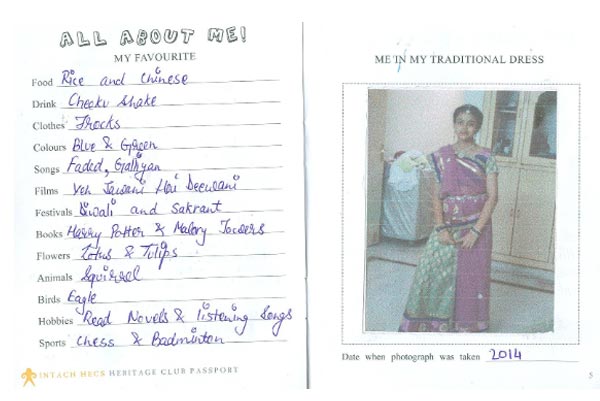 ALL ABOUT ME!
MY FAVOURITE
Food Rice and Chinese
Drink Cheeku Shake
Clothes Frocks
Colours Blue & Green
Songs Faded, Galliyan
Films Yeh Jawani Hai Deewani
Festivals Diwali and Sakrant
Books Harry Potter & Malory Towers
Flowers Lotus & Tulips
Animals Squirrel
Birds Eagle
Hobbies Read Novels & listening Songs
Sports Chess & Badminton
INTACH HECS HERITAGE CLUB PASSPORT
ME IN MY TRADITIONAL DRESS
Date when photograph was taken 2014
5